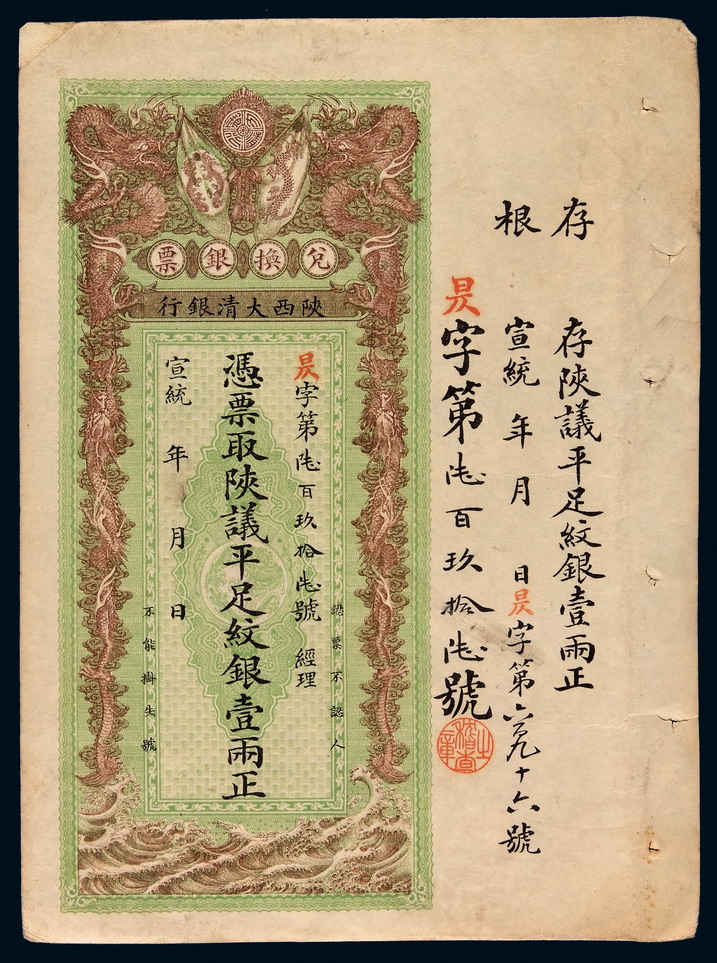 存根
存陝議平足紋銀壹兩正
宣統 年 月 日昃字第六百九十六號
昃字第陸百玖拾陸號
兌換銀票
陝西大清銀行
認票不認人
昃字第陸百玖拾陸號 經理
憑票取陝議平足紋銀壹兩正
宣統 年 月 日
不能掛失號